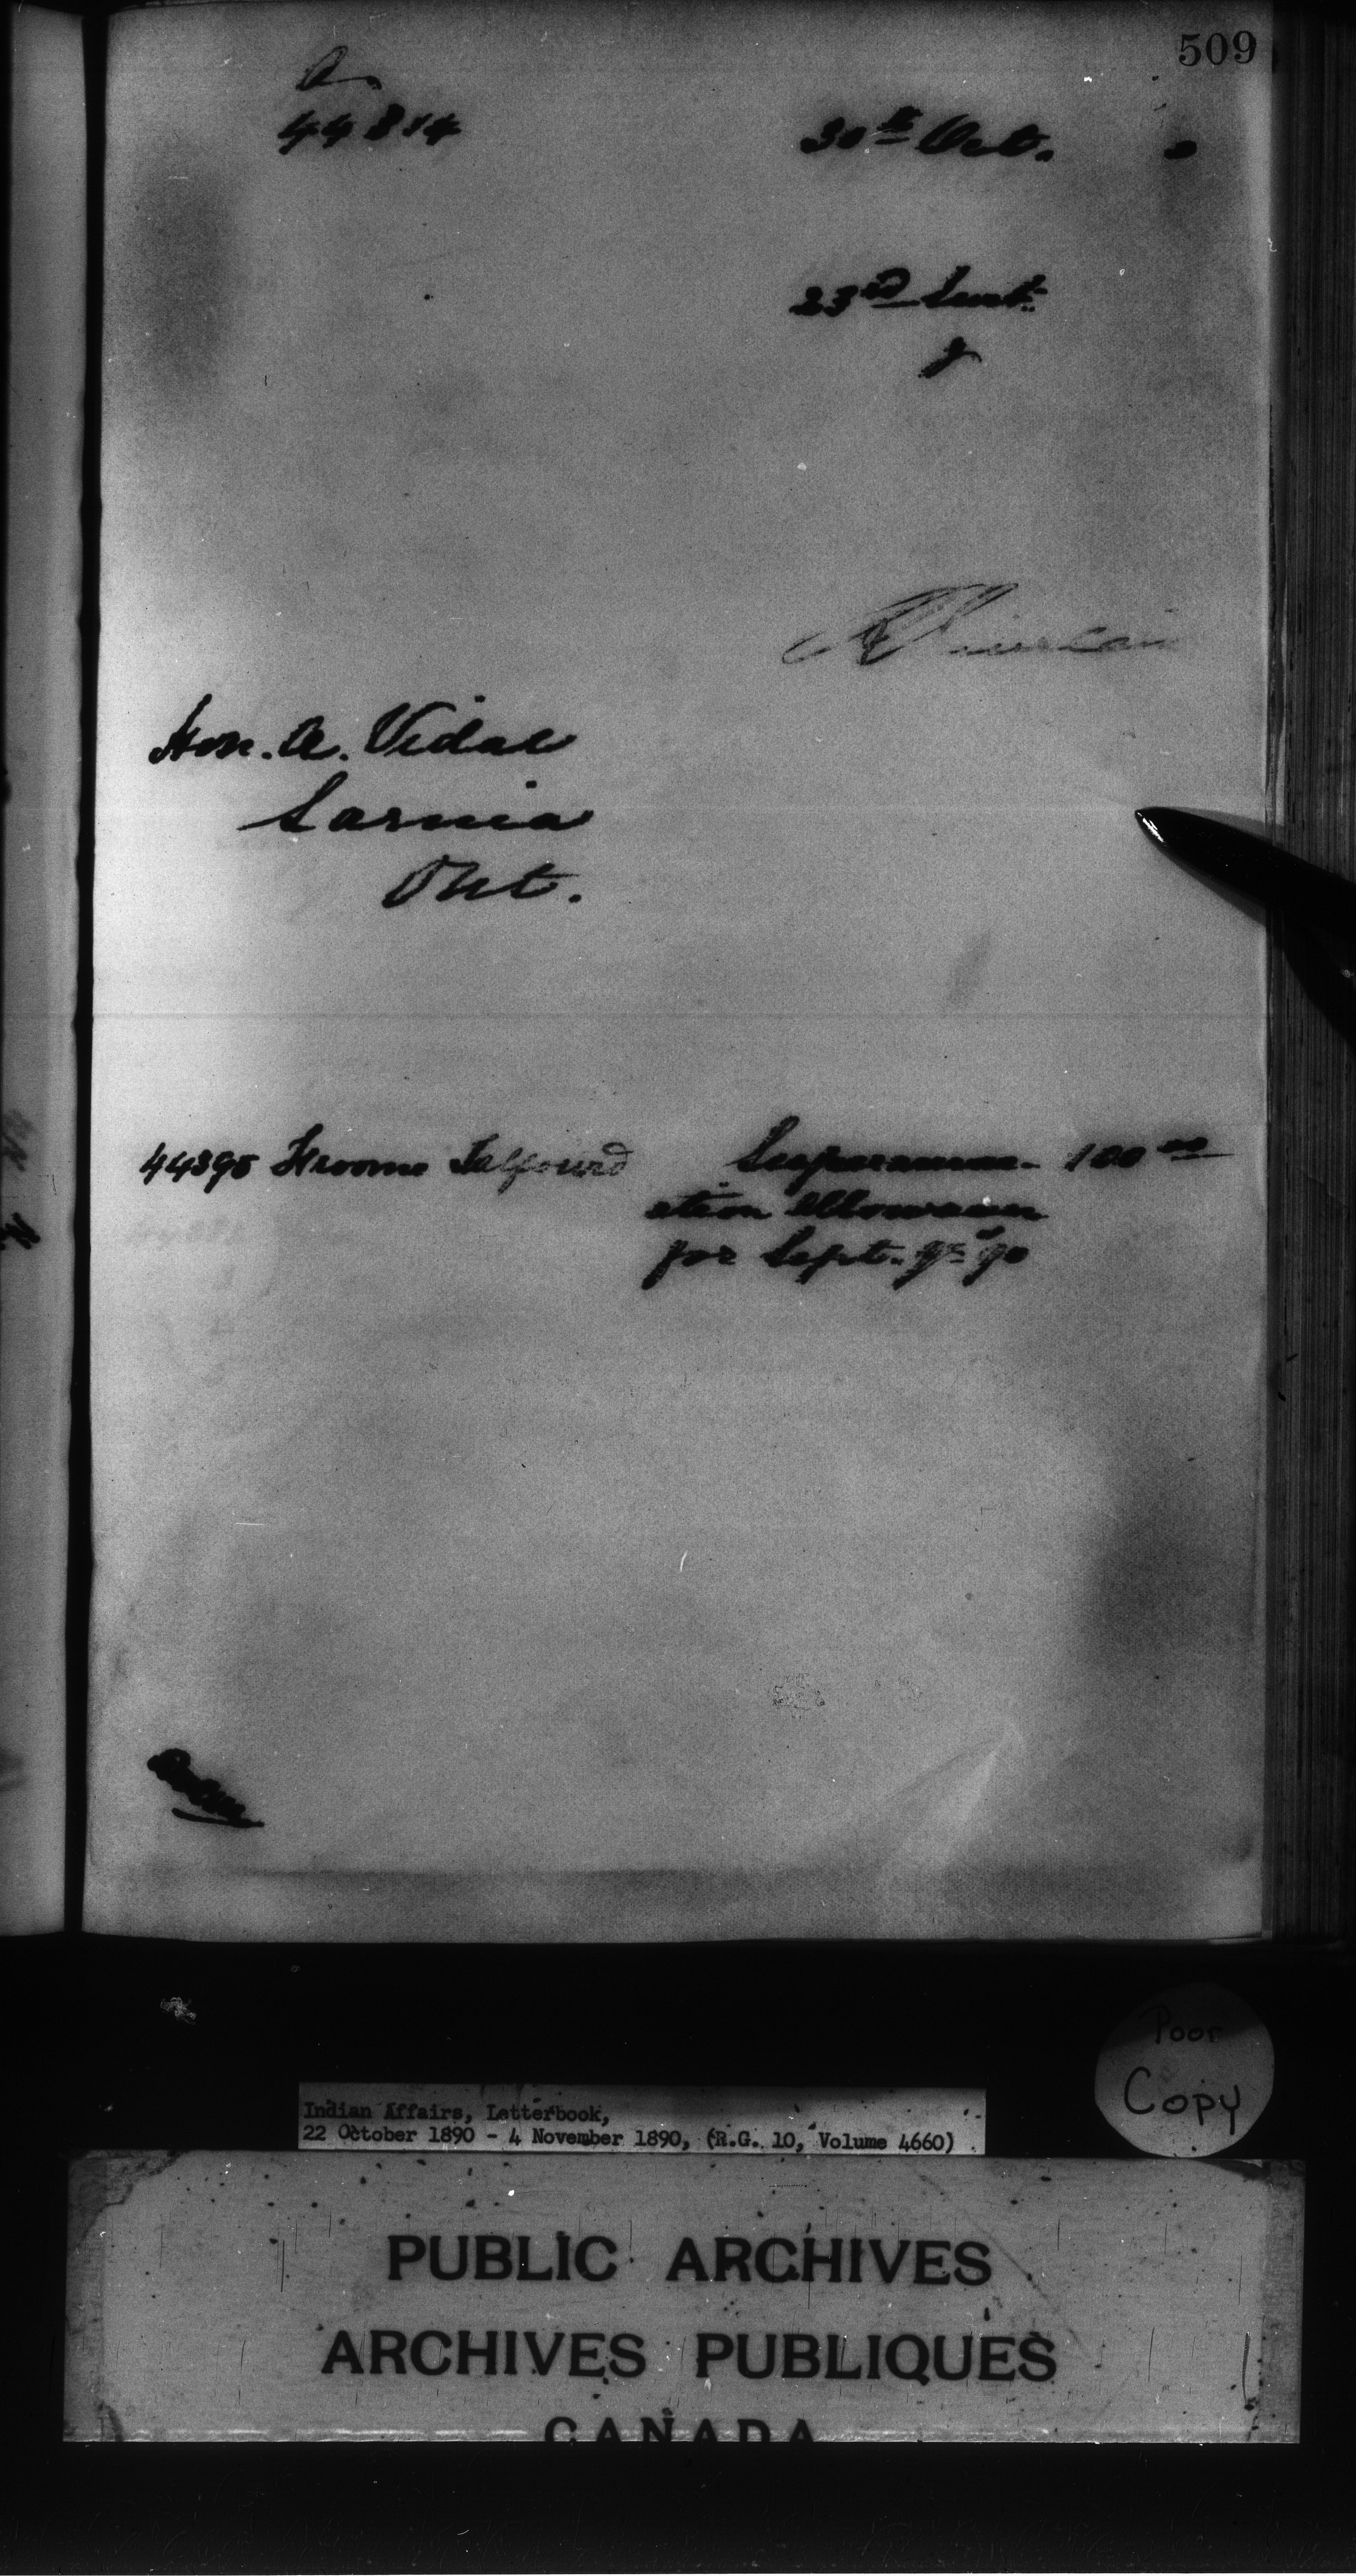 509
A
44814 30th Oct. 0
23rd Inst.
Hon. A. Vidal
Sarnia
Ont.
44395 Froome Talfourd Superannu- 100 00
ation Allowance
for Sept. qr. 90
Poor
Copy
Indian Affairs, Letterbook,
22 October 1890 - 4 November 1890, (R.G. 10, Volume 4660)
PUBLIC ARCHIVES
ARCHIVES PUBLIQUES
CANADA